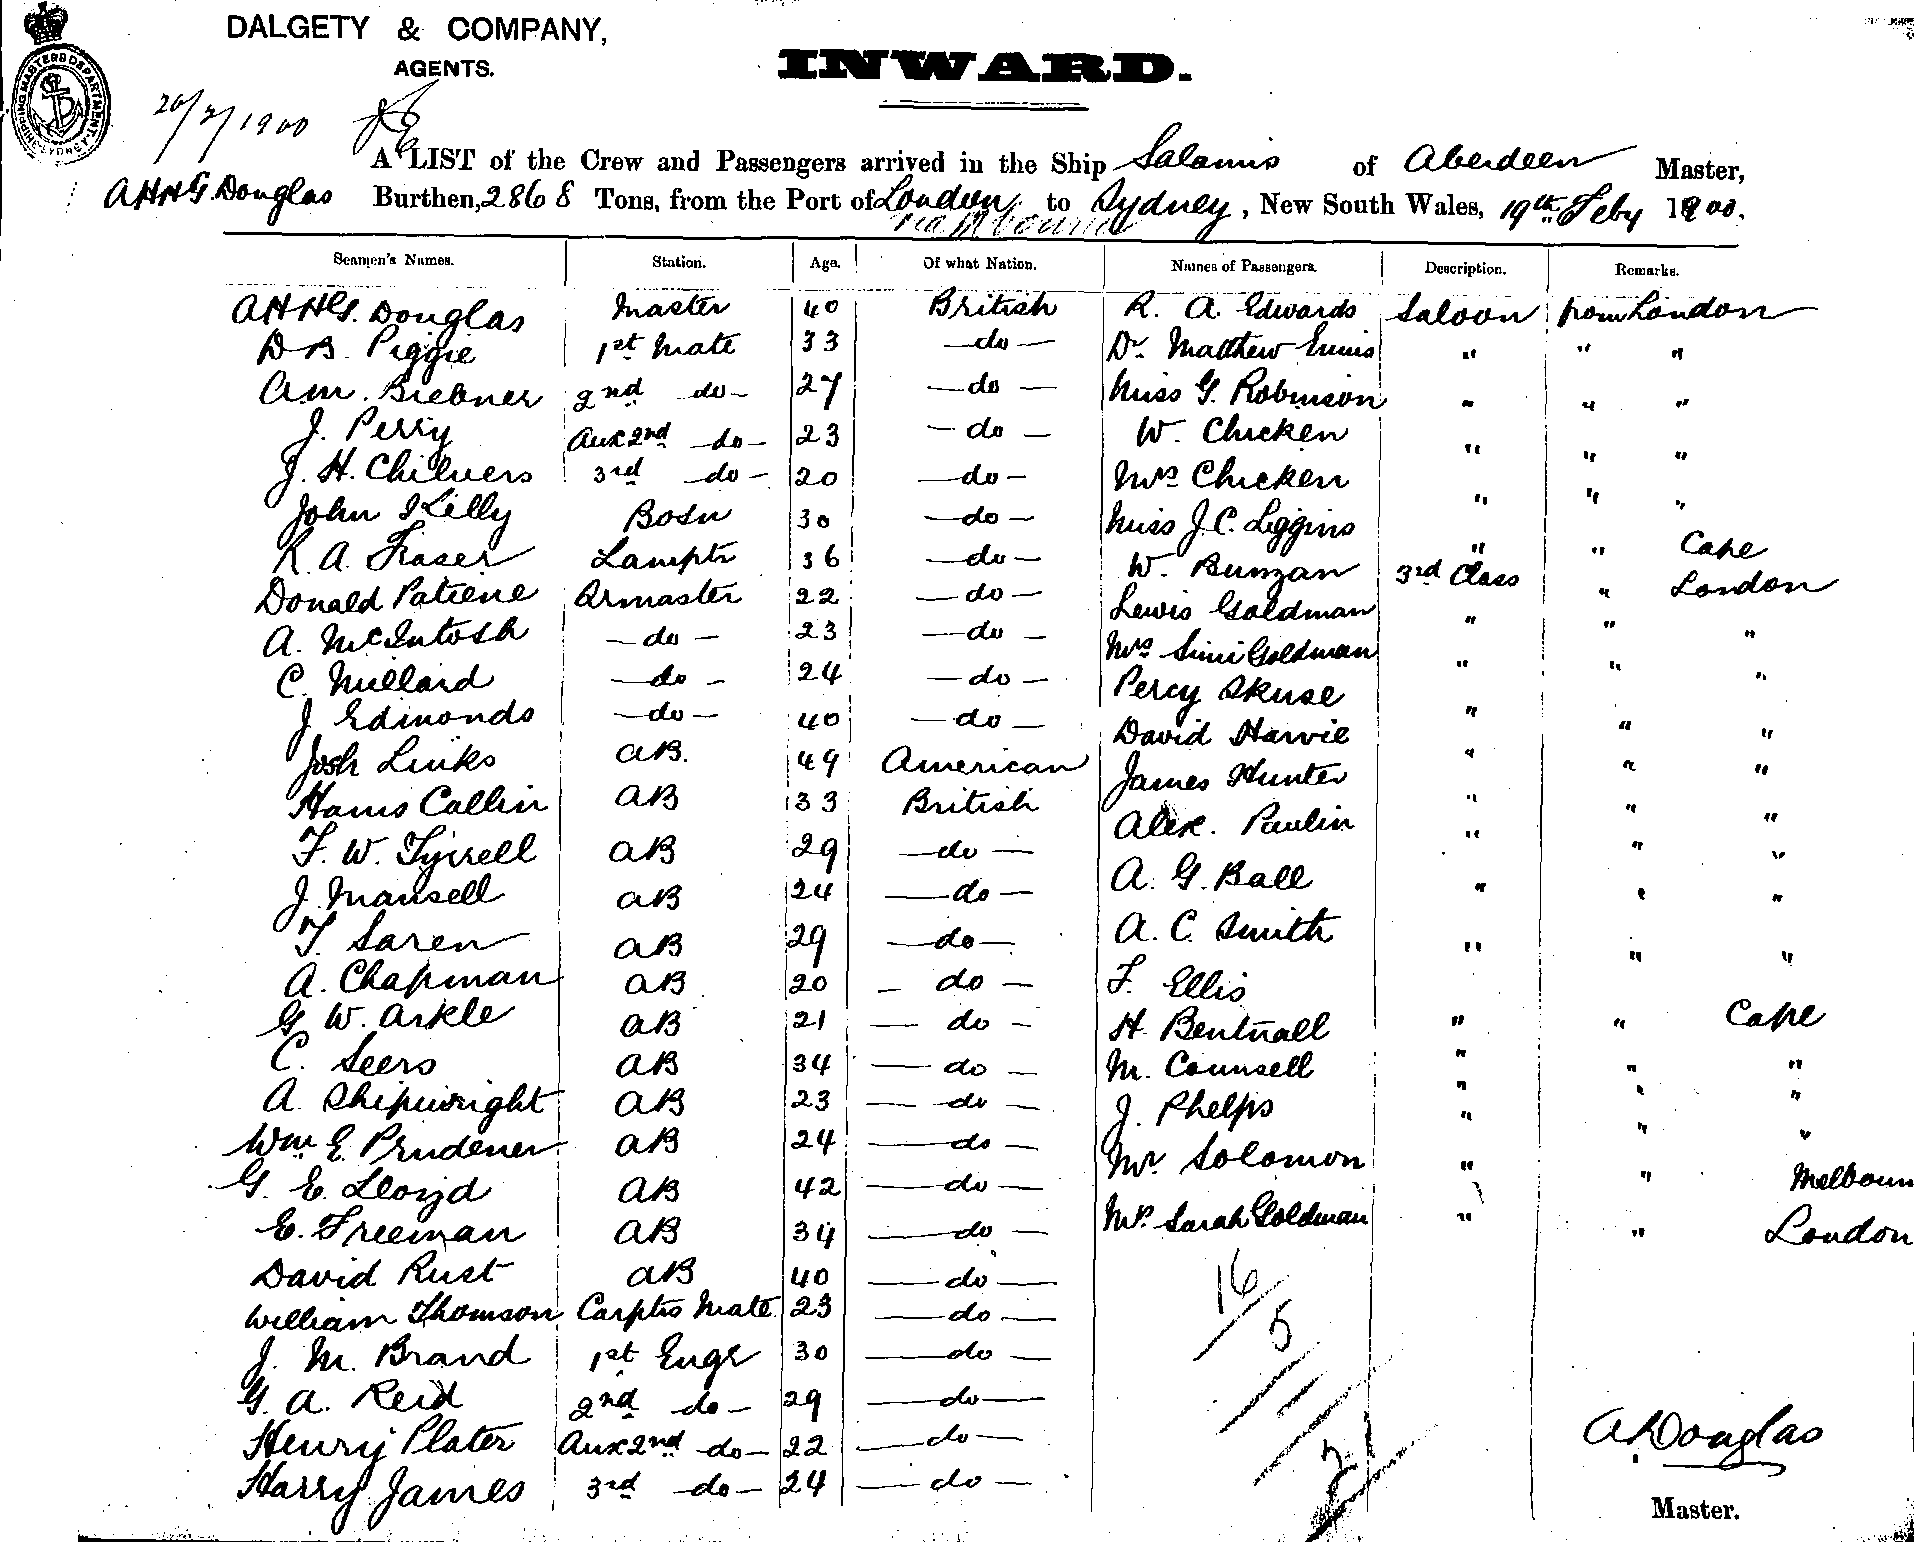 DALGETY & COMPANY,
AGENTS.
INWARD.
SHIPPING MASTERS DEPARTMENT SYDNEY
20/2/1900
A LIST of the Crew and Passengers arrived in the Ship Salamis of Aberdeen Master,
A H H G. Douglas Burthen, 2868 Tons, from the Port of London to Sydney, New South Wales, 19th Feby 1900.
via Melbourne
Seamen's Names. Station. Age. Of what Nation. Names of Passengers. Description. Remarks.
A H H G. Douglas Master 40 British R. A. Edwards Saloon from London
D B. Piggie 1st Mate 33 —do— Dr. Matthew Ennis " " "
A.M. Brebner 2nd do— 27 —do— Miss G. Robinson " " "
J. Perry Aux 2nd —do— 23 —do— W. Chicken " " "
J. H. Chilvers 3rd —do— 20 —do— Mrs Chicken " " "
John Kelly Bosn 30 —do— Miss J. C. Liggins " " Cape
R. A. Fraser Lamptr 36 —do— W. Bunzan 3rd Class " London
Donald Patiene Qrmaster 22 —do— Lewis Goldman " " "
A. McIntosh —do— 23 —do— Mrs Simi Goldman " " "
C. Millard —do— 24 —do— Percy Skuse " " "
J Edmonds —do— 40 —do— David Harvie " " "
Josh Links AB. 49 American James Hunter " " "
Collin AB 33 British Alex. Paulin " " "
F. W. Tyrrell AB 29 —do— A. G. Ball " " "
J. Mansell AB 24 —do— A. C. Smith " " "
T. Saren AB 29 —do— F. Ellis " " Cape
A. Chapman AB 20 —do— H. Bentnall " " "
G W. Arkle AB 21 —do— M. Counsell " " "
C. Seers AB 34 —do— J. Phelps " " "
A. Shipwright AB 23 —do— Mr. Solomon " " Melbourn
Wm E. Prudener AB 24 —do— Mrs. Sarah Goldman " " London
G. E. Lloyd AB 42 —do—
E. Freeman AB 34 —do—
David Rust AB 40 —do—
William Thomson Carptrs Mate 23 —do—
J. M. Brand 1st Engr 30 —do—
G. A. Reid 2nd do— 29 —do—
Henry Plater Aux 2nd do— 22 —do—
Harry James 3rd do— 24 —do—
16
5
21
A Douglas
Master.